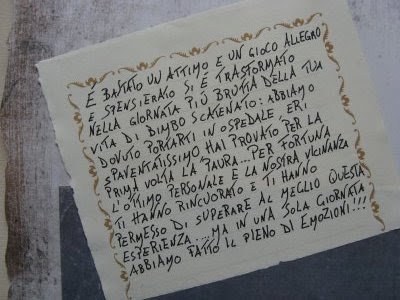 È BASTATO UN ATTIMO E UN GIOCO ALLEGRO
E SPENSIERATO SI È TRASFORMATO
NELLA GIORNATA PIÙ BRUTTA DELLA TUA
VITA DI BIMBO SCATENATO: ABBIAMO
DOVUTO PORTARTI IN OSPEDALE. ERI
SPAVENTATISSIMO HAI PROVATO PER LA
PRIMA VOLTA LA PAURA... PER FORTUNA
L'OTTIMO PERSONALE E LA NOSTRA VICINANZA
TI HANNO RINCUORATO E TI HANNO
PERMESSO DI SUPERARE AL MEGLIO QUESTA
ESPERIENZA... MA IN UNA SOLA GIORNATA
ABBIAMO FATTO IL PIENO DI EMOZIONI!!!